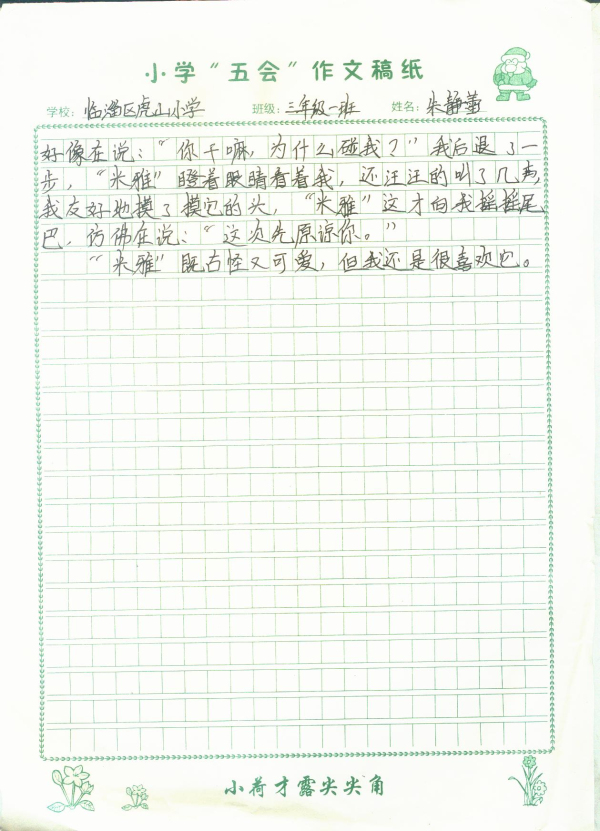 小学“五会”作文稿纸
学校：临淄区虎山小学 班级：三年级一班 姓名：朱静蕾
好像在说：“你干嘛，为什么碰我？”我后退了一
步，“米雅”瞪着眼睛看着我，还汪汪的叫了几声，
我友好地摸了摸它的头，“米雅”这才向我摇摇尾
巴，仿佛在说：“这次先原谅你。”
“米雅”既古怪又可爱，但我还是很喜欢它。
小荷才露尖尖角